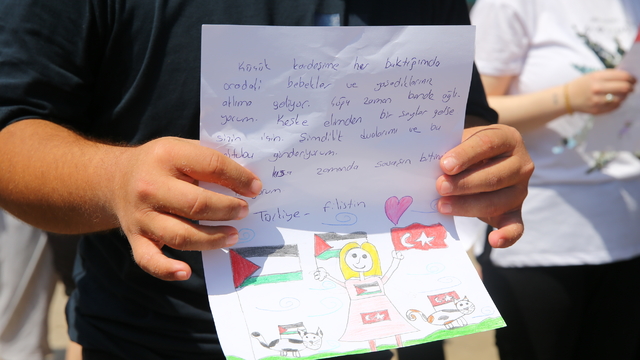 Küçük kardeşime her baktığımda
oradaki bebekler ve gördüklerimiz
aklıma geliyor. Çoğu zaman bende ağlı-
yorum. Keşke elimden bir şeyler gelse
sizin için. Şimdilik dualarımı ve bu
mektubu gönderiyorum.
zamanda savaşın bitm
Türkiye - filistin